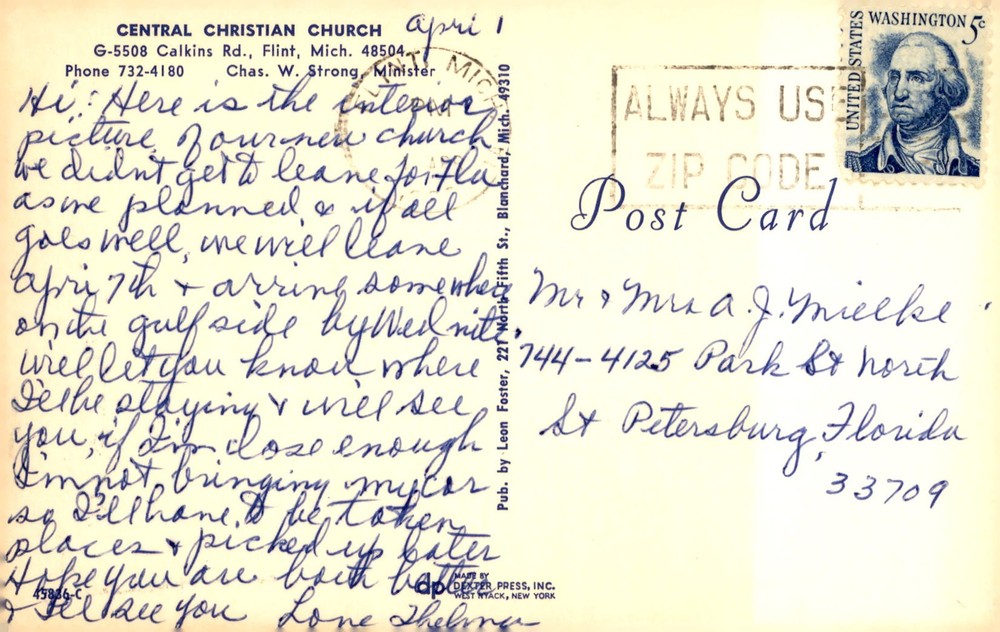 CENTRAL CHRISTIAN CHURCH
G-5508 Calkins Rd., Flint, Mich. 48504
Phone 732-4180 Chas. W. Strong, Minister
April 1
Hi: Here is the interior
picture of our new church
we didn't get to leave for Fla
as we planned, & if all
goes well, we will leave
April 7th & arrive somewhere
on the gulf side by Wed nite.
will let you know where
I'll be staying & will see
you, if I'm close enough
I'm not bringing my car
so I'll have to be taken
places & picked up later
Hope you are both better
& I'll see you Love Thelma
45836-C
Pub. by Leon Foster, 227 North Fifth St., Blanchard, Mich. 49310
dp MADE BY
DEXTER PRESS, INC.
WEST NYACK, NEW YORK
FLINT, MICH
ALWAYS USE
ZIP CODE
UNITED STATES
WASHINGTON 5c
Post Card
Mr & Mrs A. J. Mielke
744-4125 Park St North
St Petersburg, Florida
33709